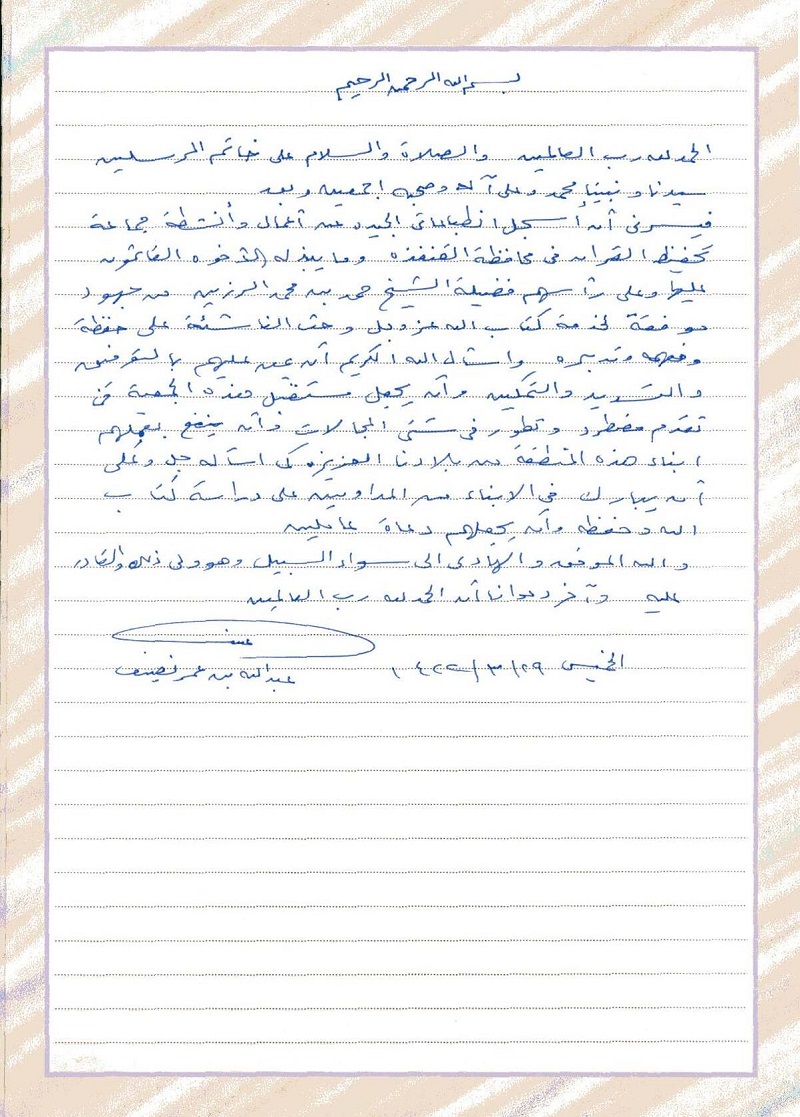 بسم الله الرحمن الرحيم
الحمد لله رب العالمين والصلاة والسلام على خاتم المرسلين
سيدنا ونبينا محمد وعلى آله وصحبه اجمعين وبعد
فيسرني أن أسجل انطباعاتي الجيده عن أعمال وأنشطة جماعة
تحفيظ القران في محافظة القنفذه وما يبذله الأخوه القائمون
عليها وعلى رأسهم فضيلة الشيخ حمد بن محمد الرزين من جهود
موفقة لخدمة كتاب الله عز وجل وحث الناشئة على حفظة
وفهمه وتدبره واسأل الله الكريم أن يمن عليهم بالتوفيق
والتسديد والتمكين وأن يجعل مستقبل هذه الجمعية في
تقدم مضطرد وتطور في شتى المجالات وأن ينفع بعملهم
ابناء هذه المنطقة من بلادنا العزيزه كما اسأله جل وعلى
أن يبارك في الابناء من المداومين على دراسة كتاب
الله وحفظه وأن يجعلهم دعاة عاملين
والله الموفق والهادي الى سواء السبيل وهو ولي ذلك والقادر
عليه وآخر دعوانا أن الحمد لله رب العالمين
الخميس ٢٩/٣/١٤٢٢
عبدالله بن عمر نصيف